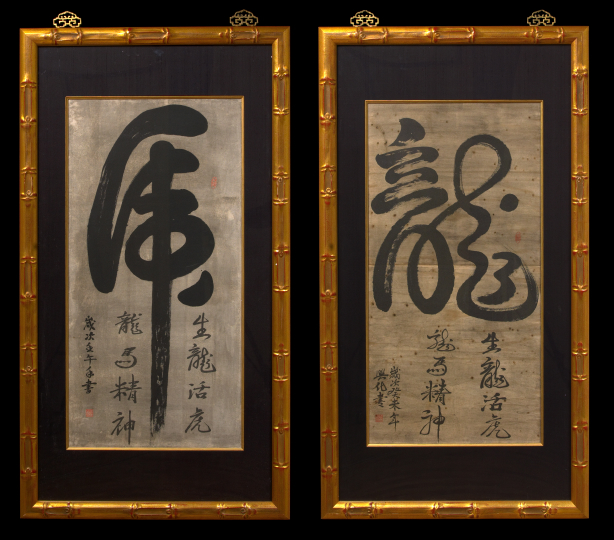 龍
生龍活虎
龍馬精神
歲次癸未年
書
虎
生龍活虎
龍馬精神
歲次壬午年書